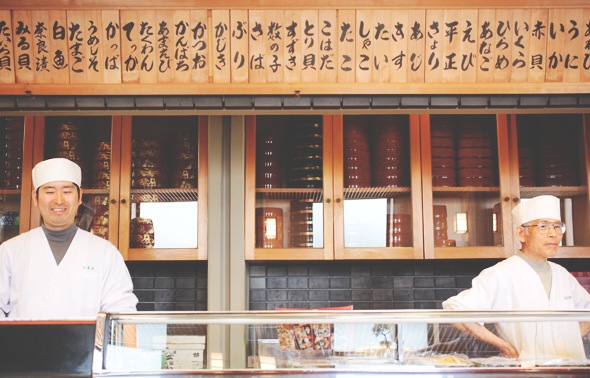 あわび
かに
赤貝
いくら
ひらめ
あなご
えび
平正
さより
あじ
きす
たい
しゃこ
たこ
こはだ
とり貝
すずき
数の子
さば
ぶり
かじき
かつお
かんぱち
あまえび
てっか
かっぱ
うめしそ
たまご
白魚
奈良漬
みる貝
たいら貝